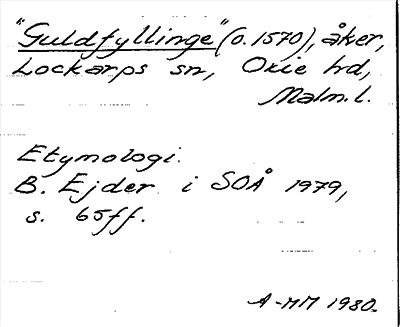 "Guldfyllinge" (o. 1570), åker,
Lockarps sn, Oxie hd,
Malm. l.
Etymologi.
B. Ejder i SOÅ 1979,
s. 65ff.
A-MM 1980.